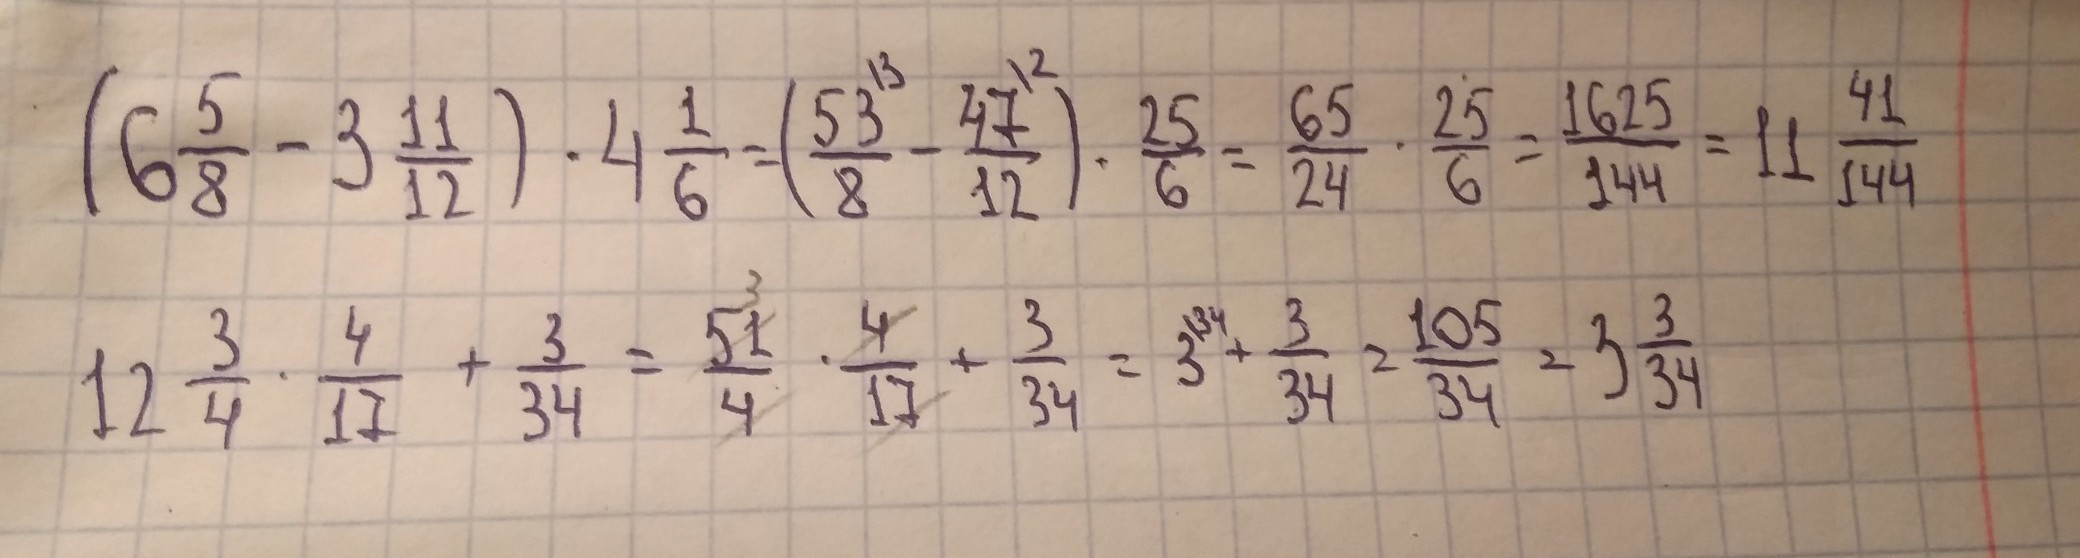 (6 5/8 - 3 11/12) · 4 1/6 = (53/8 \3 - 47/12 \2) · 25/6 = 65/24 · 25/6 = 1625/144 = 11 41/144
12 3/4 · 4/17 + 3/34 = 51/4 3 · 4/17 + 3/34 = 3 \34 + 3/34 = 105/34 = 3 3/34